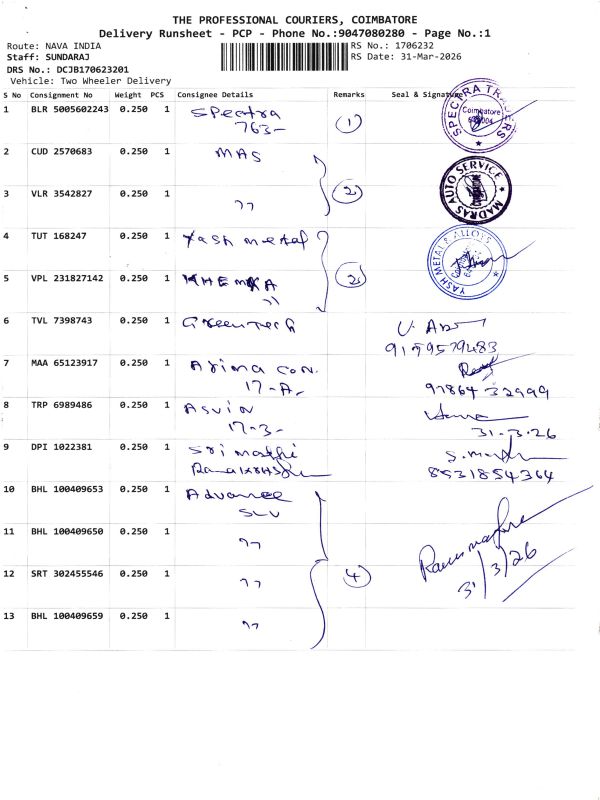 THE PROFESSIONAL COURIERS, COIMBATORE
Delivery Runsheet - PCP - Phone No.:9047080280 - Page No.:1
Route: NAVA INDIA
RS No.: 1706232
Staff: SUNDARAJ
RS Date: 31-Mar-2026
DRS No.: DCJB170623201
Vehicle: Two Wheeler Delivery
S No Consignment No Weight PCS Consignee Details Remarks Seal & Signature
1 BLR 5005602243 0.250 1 Spectra 1
763-
SPECTRA TRADERS
Coimbatore
2 CUD 2570683 0.250 1 MAS
MADRAS AUTO SERVICE
3 VLR 3542827 0.250 1 " 2
4 TUT 168247 0.250 1 Yash metal
YASH METAL & ALLOYS
5 VPL 231827142 0.250 1 KHEMKA 2
"
6 TVL 7398743 0.250 1 Greentech
9159579483
7 MAA 65123917 0.250 1 Arima Con.
17-A-
97864 32999
8 TRP 6989486 0.250 1 Asvin
17-3-
31-3-26
9 DPI 1022381 0.250 1 Sri mathi
8531854364
10 BHL 100409653 0.250 1 Advance
SLV
11 BHL 100409650 0.250 1 "
12 SRT 302455546 0.250 1 " 4
31/3/26
13 BHL 100409659 0.250 1 "